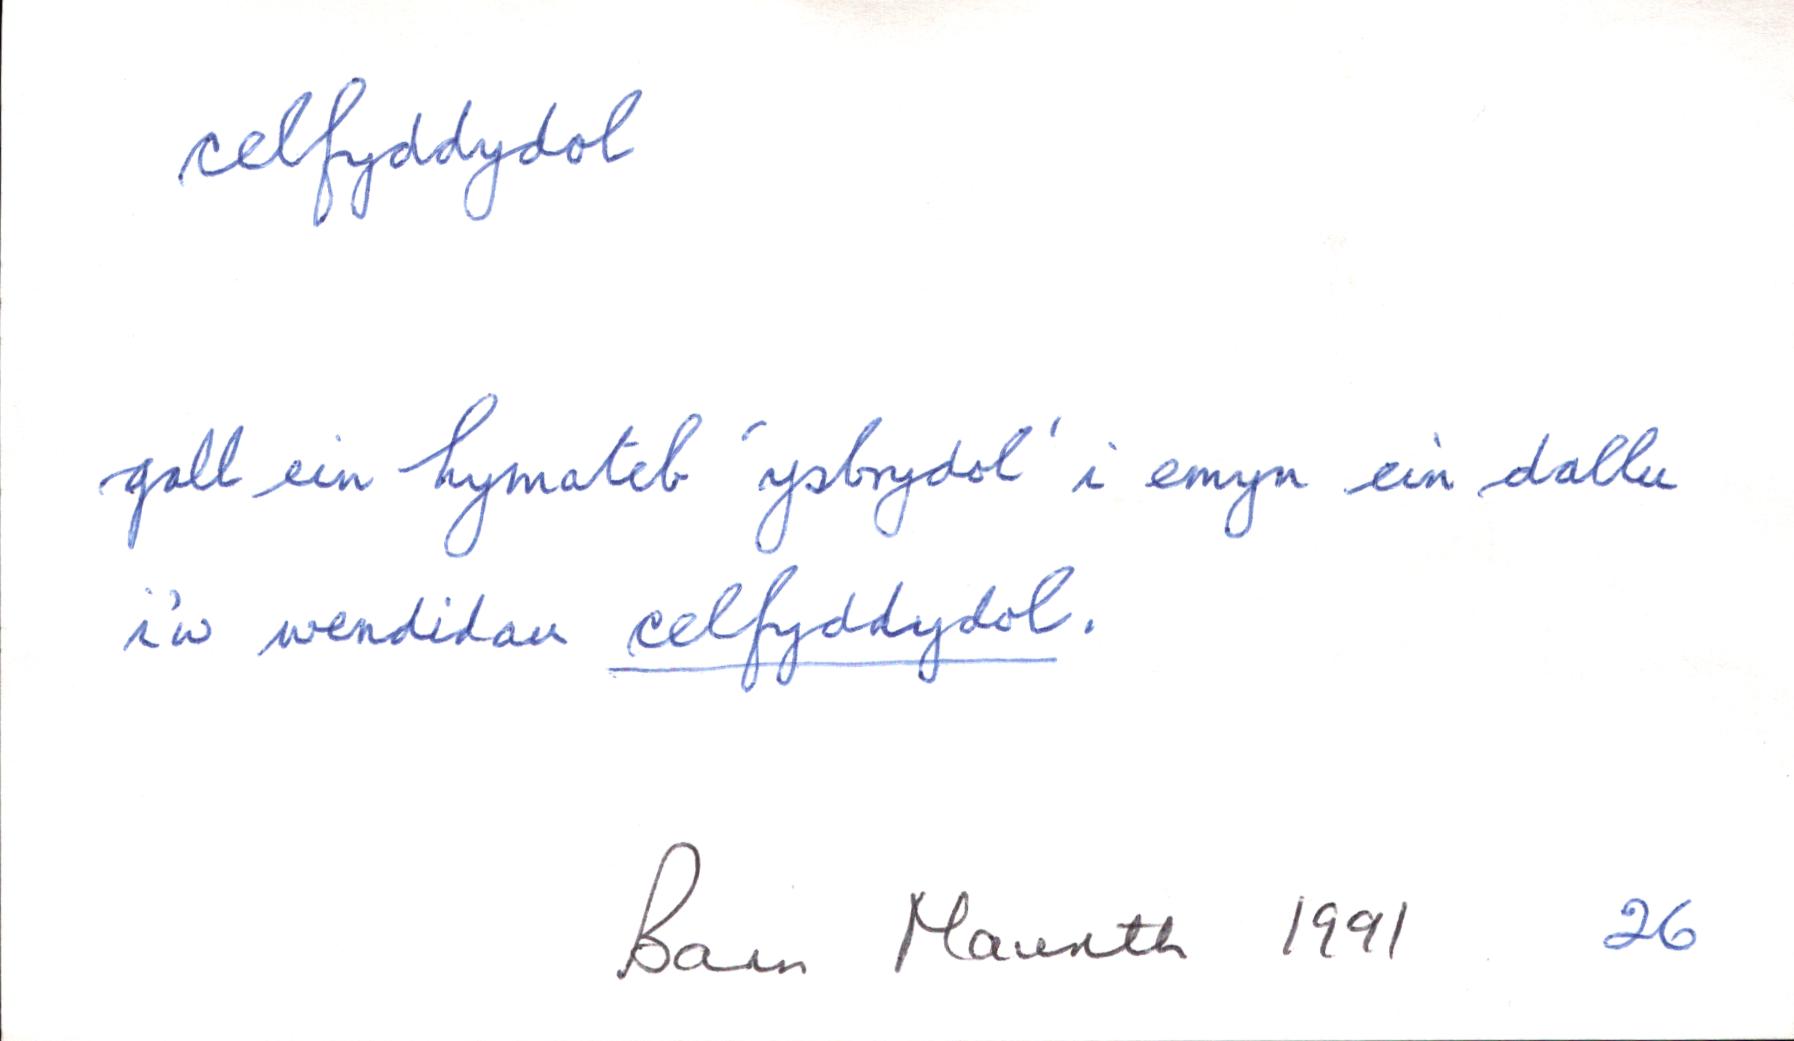 celfyddydol
gall ein hymateb 'ysbrydol' i emyn ein dallu
i'w wendidau celfyddydol.
Barn Mawrth 1991 26